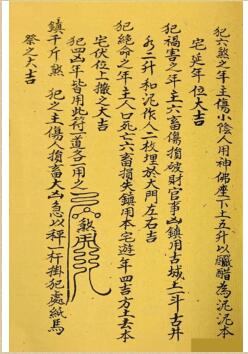 犯六煞之年小儈人用神佛座下土五升以臘醋為泥泥本
宅延年位大吉
犯禍害之年主六畜傷損破財官事凶鎮用古城土一斗古井
水二升和泥作人二枚埋於大門左右吉
犯絕命之年主人口死亡六畜損失鎮用本宅遊年四吉方土去本
宅伏位上撒之大吉
犯四凶年皆用此符一道各一用之
煞用
鎮千斤煞 犯之主傷人損畜大凶急以秤一杆掛犯處紙馬
祭之大吉